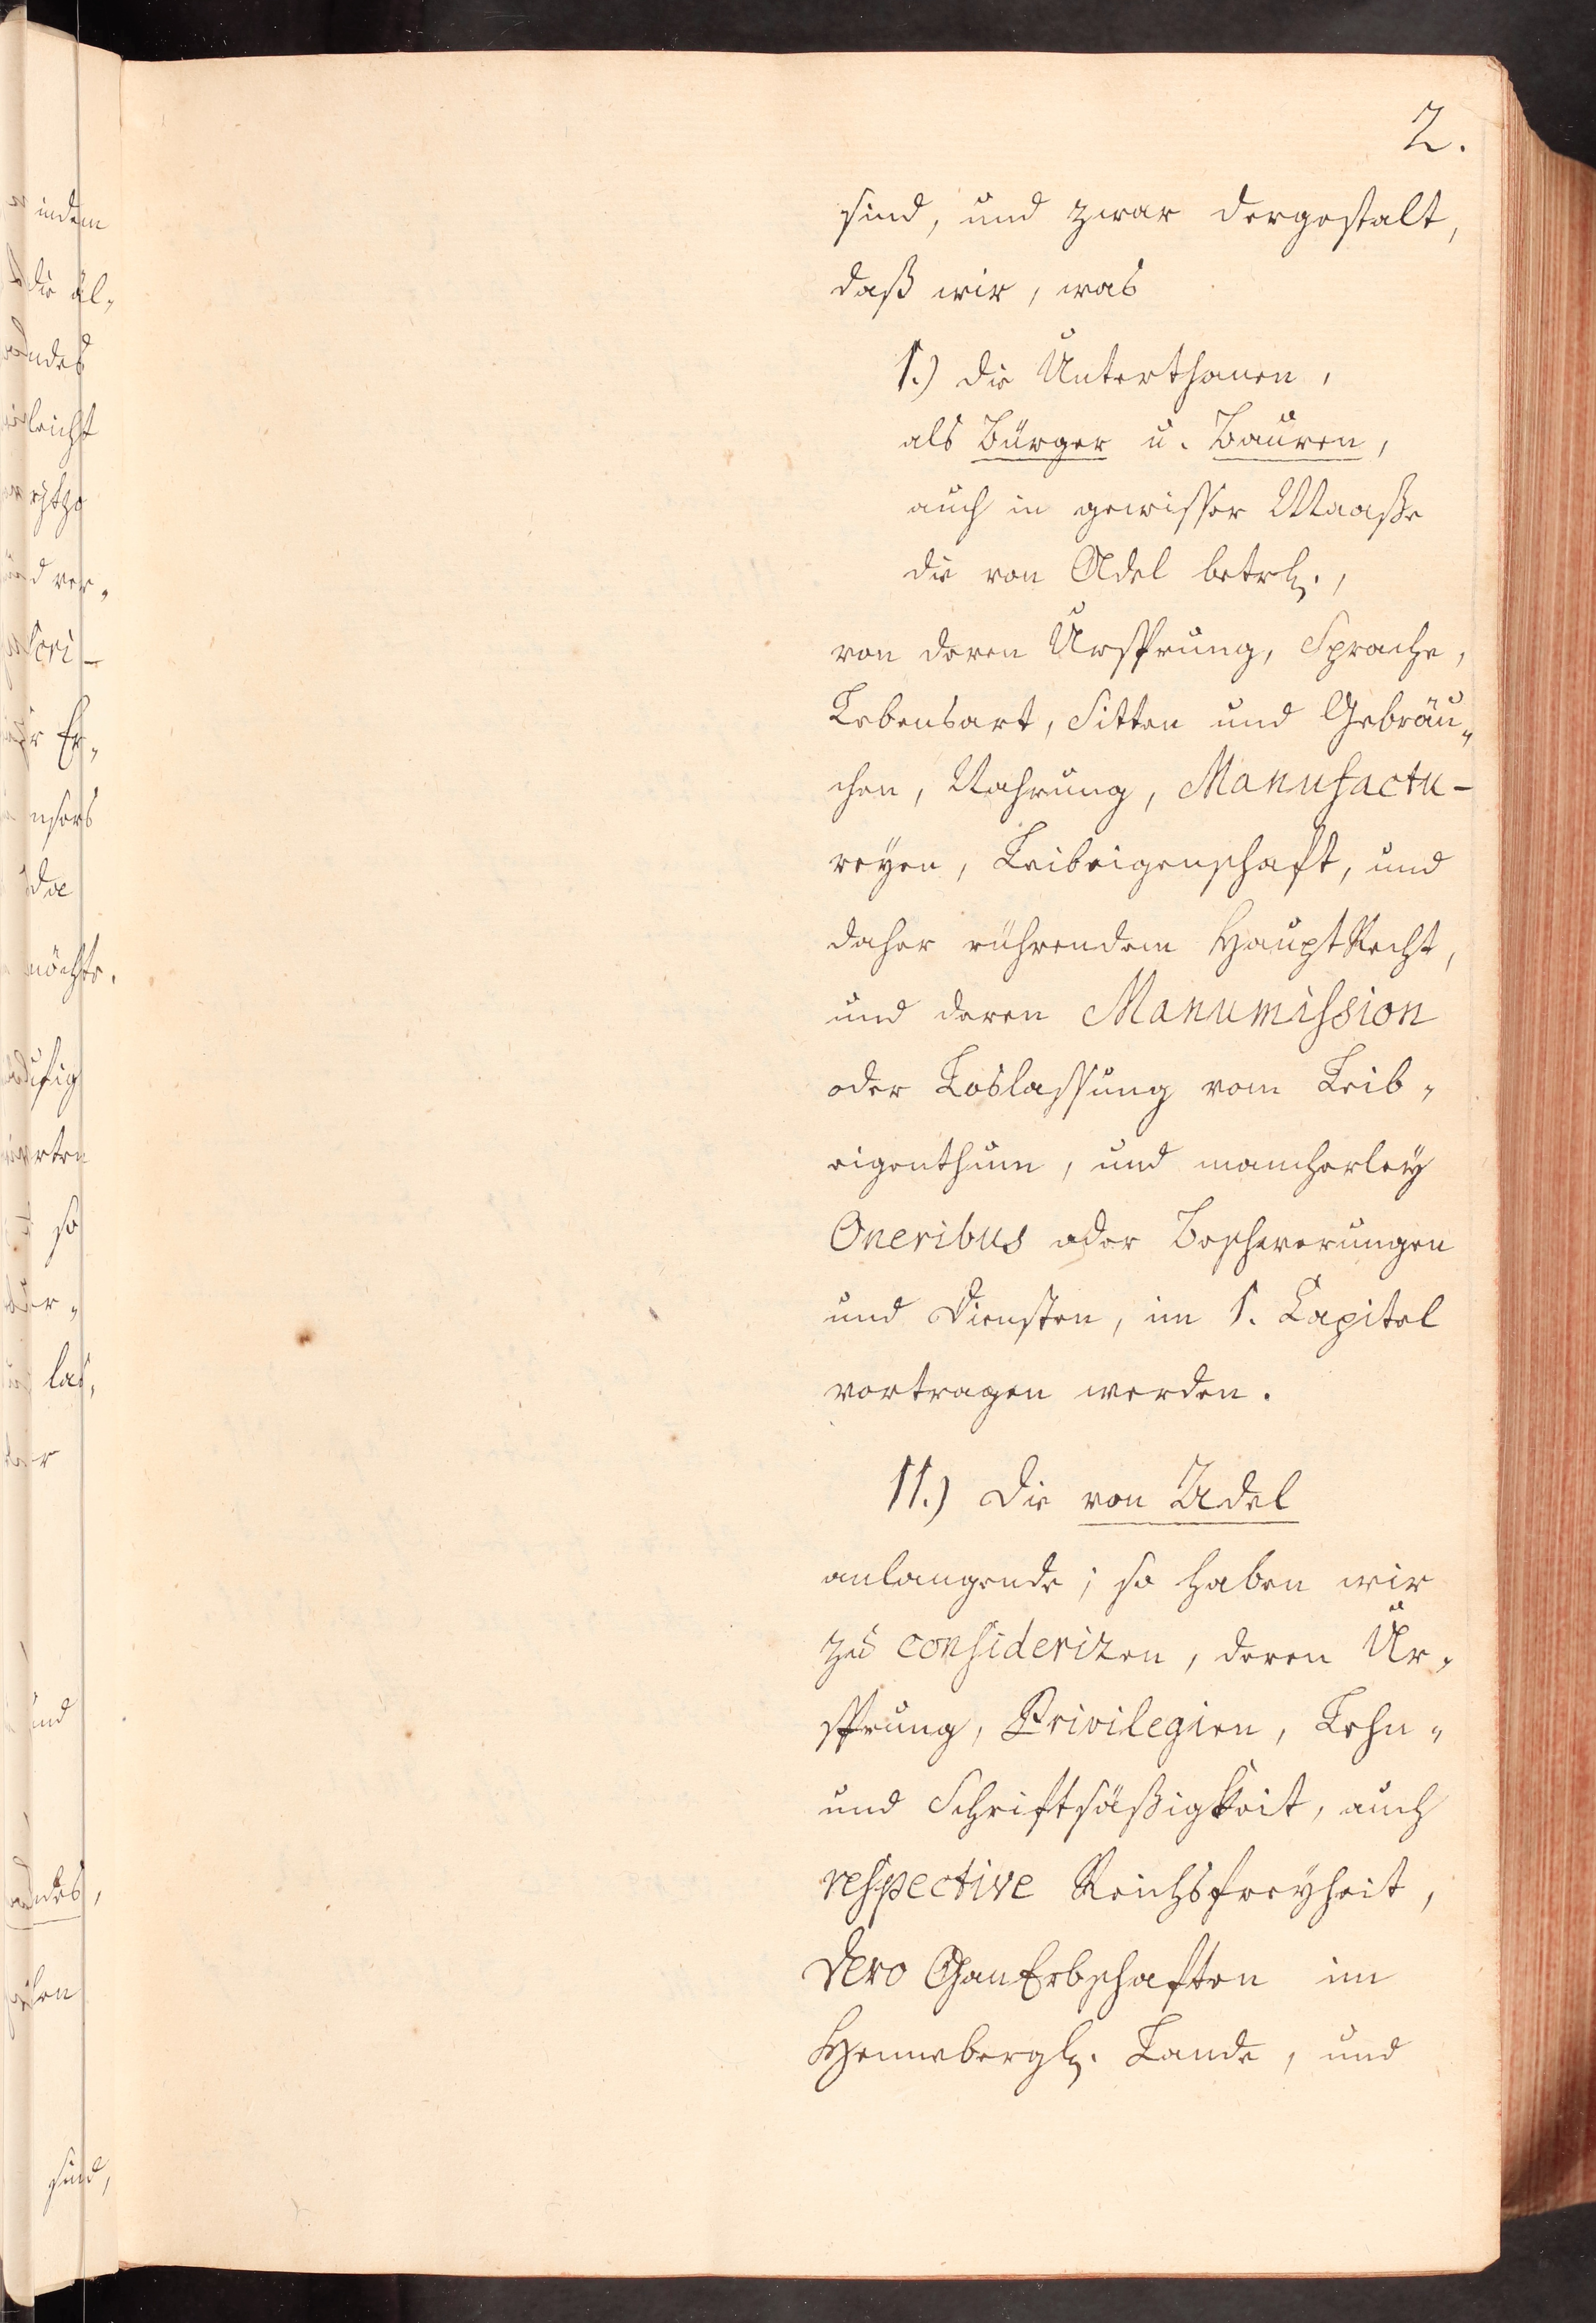 2.
sind, und zwar dergestalt,
daß wir, was
1.) die Unterthanen,
als Bürger u. Bauren,
auch in gewisser Maaße
die von Adel betrl.,
von deren Ursprung, Sprache,
Lebensart, Sitten und Gebräu„
chen, Nahrung, Manufactu-
reyen, Leibeigenschaft, und
daher rührendem HauptRecht,
und deren Manumission
oder Loslassung vom Leib„
eigenthum, und mancherley
Oneribus oder Beschwerungen
und Diensten, im 1. Capitel
vortragen werden.
11.) Die von Adel
anlangende; so haben wir
zu consideriren, deren Ur„
sprung, Privilegien, Lehn„
und Schriftsäßigkeit, auch
respective Reichsfreyheit,
dero GanErbschaften im
Hennebergl. Lande, und